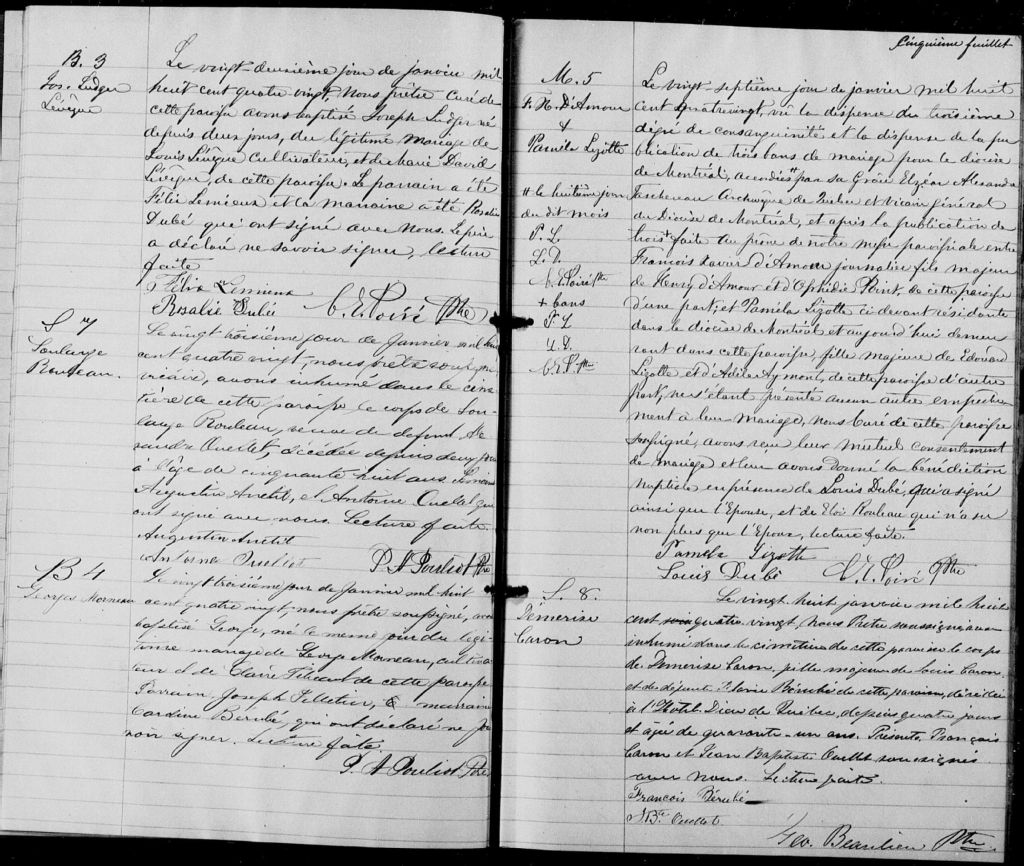 B. 3
Jos. Ledger
Lévêque
Le vingt-deuxième jour de janvier mil
huit cent quatre vingt, Nous prêtre Curé de
cette paroisse avons baptisé Joseph Ledger né
depuis deux jours, du légitime mariage de
Louis Lévêque Cultivateur, et de Marie David
Lévêque, de cette paroisse. Le parrain a été
Félix Lemieux et la marraine a été Rosalie
Dubé qui ont signé avec Nous. Le père
a déclaré ne savoir signer, lecture
faite
Félix Lemieux
Rosalie Dubé
C. E. Poiré Ptre
S 7
Soulange
Rouleau.
Le vingt troisième jour de Janvier mil huit
cent quatre vingt, nous prêtre soussigné
vicaire, avons inhumé dans le cime
tière de cette paroisse le corps de Sou
lange Rouleau, veuve de defunt
Ouellet, décédée depuis deux jours
à l'âge de cinquante huit ans. Témoins
Augustin Anctil, et Antoine Ouellet qui
ont signé avec nous. Lecture faite.
Augustin Anctil
Antoine Ouellet
P. A Pouliot Ptre
B 4
Georges Morneau
Le vingt troisième jour de Janvier mil huit
cent quatre vingt, nous prêtre soussigné, avons
baptisé George, né le même jour du légi-
time mariage de George Morneau, cultiva
teur et de Claire de cette paroisse
Parrain, Joseph Pelletier, & marraine
Caroline Bérubé, qui ont déclaré ne sa
voir signer. Lecture faite.
P. A Pouliot Ptre
Cinquième feuillet
M. 5
F. X. D'Amour
&
Paméla Lizotte
# le huitième jour
du dit mois
P. L.
L. D.
C. E. Poiré Ptre
+ bans
P. L
L. D.
C. E. P. Ptre
Le vingt septième jour de janvier mil huit
cent quatrevingt, vû la dispense du troisième
dégré de consanguinité et la dispense de la pu
blication de trois bans de mariage pour le diocèse
de Montréal, accordées # par sa Grâce Elzéar Alexandre
Taschereau Archevêque de Québec et Vicaire Général
du Diocèse de Montréal, et après la publication de
trois + faite au prône de notre messe paroissiale entre
François Xavier d'Amour journalier fils majeur
de Henry d'Amour et d'Osphidie Point, de cette paroisse
d'une part; et Paméla Lizotte ci devant résidante
dans le diocèse de Montréal et aujourd'hui demeu
rant dans cette paroisse, fille majeure de Edouard
Lizotte et d'Adèle Aymont, de cette paroisse d'autre
part, ne s'étant présenté aucun autre empêche
ment à leur mariage, nous Curé de cette paroisse
soussigné, avons reçu leur mutuel consentement
de mariage et leur avons donné la bénédiction
nuptiale en présence de Louis Dubé, qui a signé
ainsi que l'Epouse, et de Eloi Rouleau qui n'a su
non plus que l'Epoux, lecture faite.
Pamela Lizotte
Louis Dubé
C. E. Poiré Ptre
S. 8.
Démerise
Caron
Le vingt huit janvier mil huit
cent quatre vingt, nous Prêtre soussigné avons
inhumé dans le cimetière de cette paroisse le corps
de Démerise Caron, fille majeure de Louis Caron
et de défunte Marie Bérubé de cette paroisse, décédée
à l'Hotel Dieu de Québec, depuis quatre jours
et âgée de quarante-un ans. Présents François
Caron et Jean Baptiste Ouellet soussignés
avec nous. Lecture faite.
François Bérubé
J. Bte Ouellet
Geo. Beaulieu Ptre